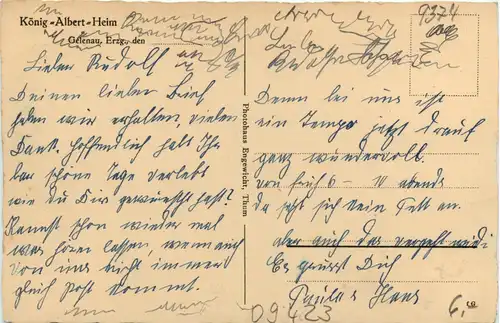 König-Albert-Heim
Gelenau, Erzg., den
Lieber Rudolf
Deinen lieben Brief
haben wir erhalten, vielen
Dank. Hoffentlich habt Ihr
schöne Tage verlebt
wie Du Dir gewünscht hast?
Kannst schon wieder mal
was hören lassen, wenn auch
von uns nicht immer
gleich Post kommt.
Photohaus Engewicht, Thum
9374
Denn bei uns ist
ein Tempo jetzt drauf
ganz wundervoll.
von früh 6 - 10 abends
da setzt sich kein Fett an.
aber auch das vergeht
Es grüsst Dich
Paula & Hans
09423
6,-